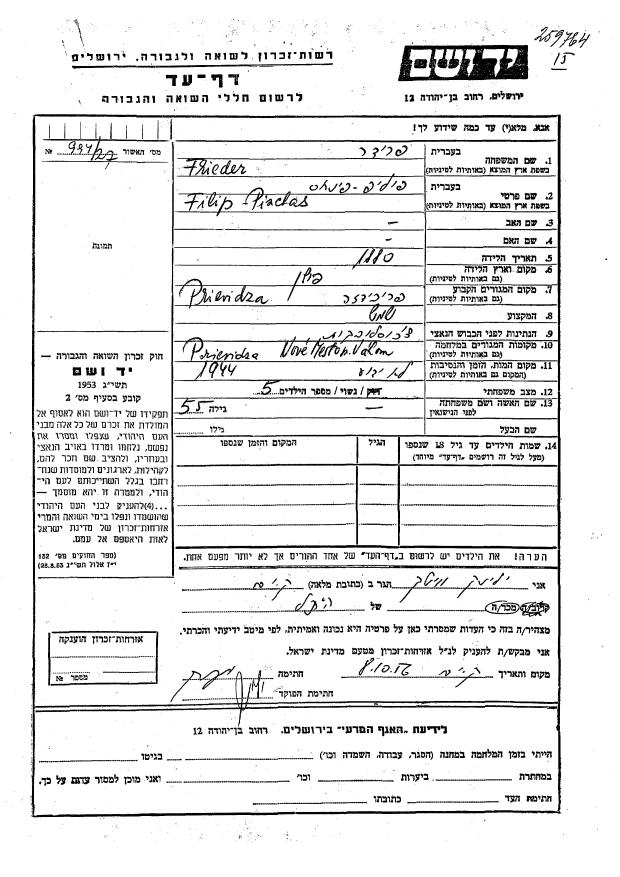 259764
15
יד ושם
ירושלים, רחוב בן־יהודה 12
רשות־זכרון לשואה ולגבורה, ירושלים
דף־עד
לרשום חללי השואה והגבורה
אנא, מלא(י) עד כמה שידוע לך!
מס׳ האשור
№
תמונה
1. שם המשפחה
בעברית
פרידר
בשפת ארץ המוצא (באותיות לטיניות)
Frieder
2. שם פרטי
בעברית
פיליפ-פינחס
בשפת ארץ המוצא (באותיות לטיניות)
Filip
3. שם האב –
4. שם האם –
5. תאריך הלידה 1880
6. מקום וארץ הלידה
(גם באותיות לטיניות)
7. מקום המגורים הקבוע
(גם באותיות לטיניות)
פריבידזה Prievidza
8. המקצוע
9. הנתינות לפני הכבוש הנאצי
צ׳כוסלובקית
10. מקומות המגורים במלחמה
(גם באותיות לטיניות)
Prievidza Nové Mesto n. Váhom
11. מקום המות, הזמן והנסיבות
(המקום גם באותיות לטיניות)
לא ידוע 1944
12. מצב משפחתי רווק / נשוי / מספר הילדים 5
13. שם האשה ושם משפחתה
לפני הנישואין
– גילה 55
שם הבעל גילו
14. שמות הילדים עד גיל 18 שנספו
(מעל לגיל זה רושמים „דף־עד״ מיוחד)
הגיל
המקום והזמן שנספו
חוק זכרון השואה והגבורה —
יד ושם
תשי״ג 1953
קובע בסעיף מס׳ 2
תפקידו של יד־ושם הוא לאסוף אל
המולדת את זכרם של כל אלה מבני
העם היהודי, שנפלו ומסרו את
נפשם, נלחמו ומרדו באויב הנאצי
ובעוזריו, ולהציב שם וזכר להם,
לקהילות, לארגונים ולמוסדות שנח־
רבו בגלל השתייכותם לעם הי־
הודי, ולמטרה זו יהא מוסמך —
...(4) להעניק לבני העם היהודי
שהושמדו ונפלו בימי השואה והמרי
אזרחות־זכרון של מדינת ישראל
לאות היאספם אל עמם.
(ספר החוקים מס׳ 132
י״ז אלול תשי״ג 28.8.53)
הערה! את הילדים יש לרשום ב„דף־העד״ של אחד ההורים אך לא יותר מפעם אחת.
אני הגר ב (כתובת מלאה)
קרוב/ה מכר/ה של
מצהיר/ה בזה כי העדות שמסרתי כאן על פרטיה היא נכונה ואמיתית, לפי מיטב ידיעתי והכרתי.
אני מבקש/ת להעניק לנ״ל אזרחות־זכרון מטעם מדינת ישראל.
מקום ותאריך 8.10.56 חתימה
חתימת הפוקד
אזרחות־זכרון הוענקה
מספר №
לידיעת „האגף המרעי״ בירושלים, רחוב בן־יהודה 12
הייתי בזמן המלחמה במחנה (הסגר, עבודה, השמדה וכו׳) בגיטו
במחתרת ביערות וכו׳ ואני מוכן למסור עדות על כך.
חתימת העד כתובתו